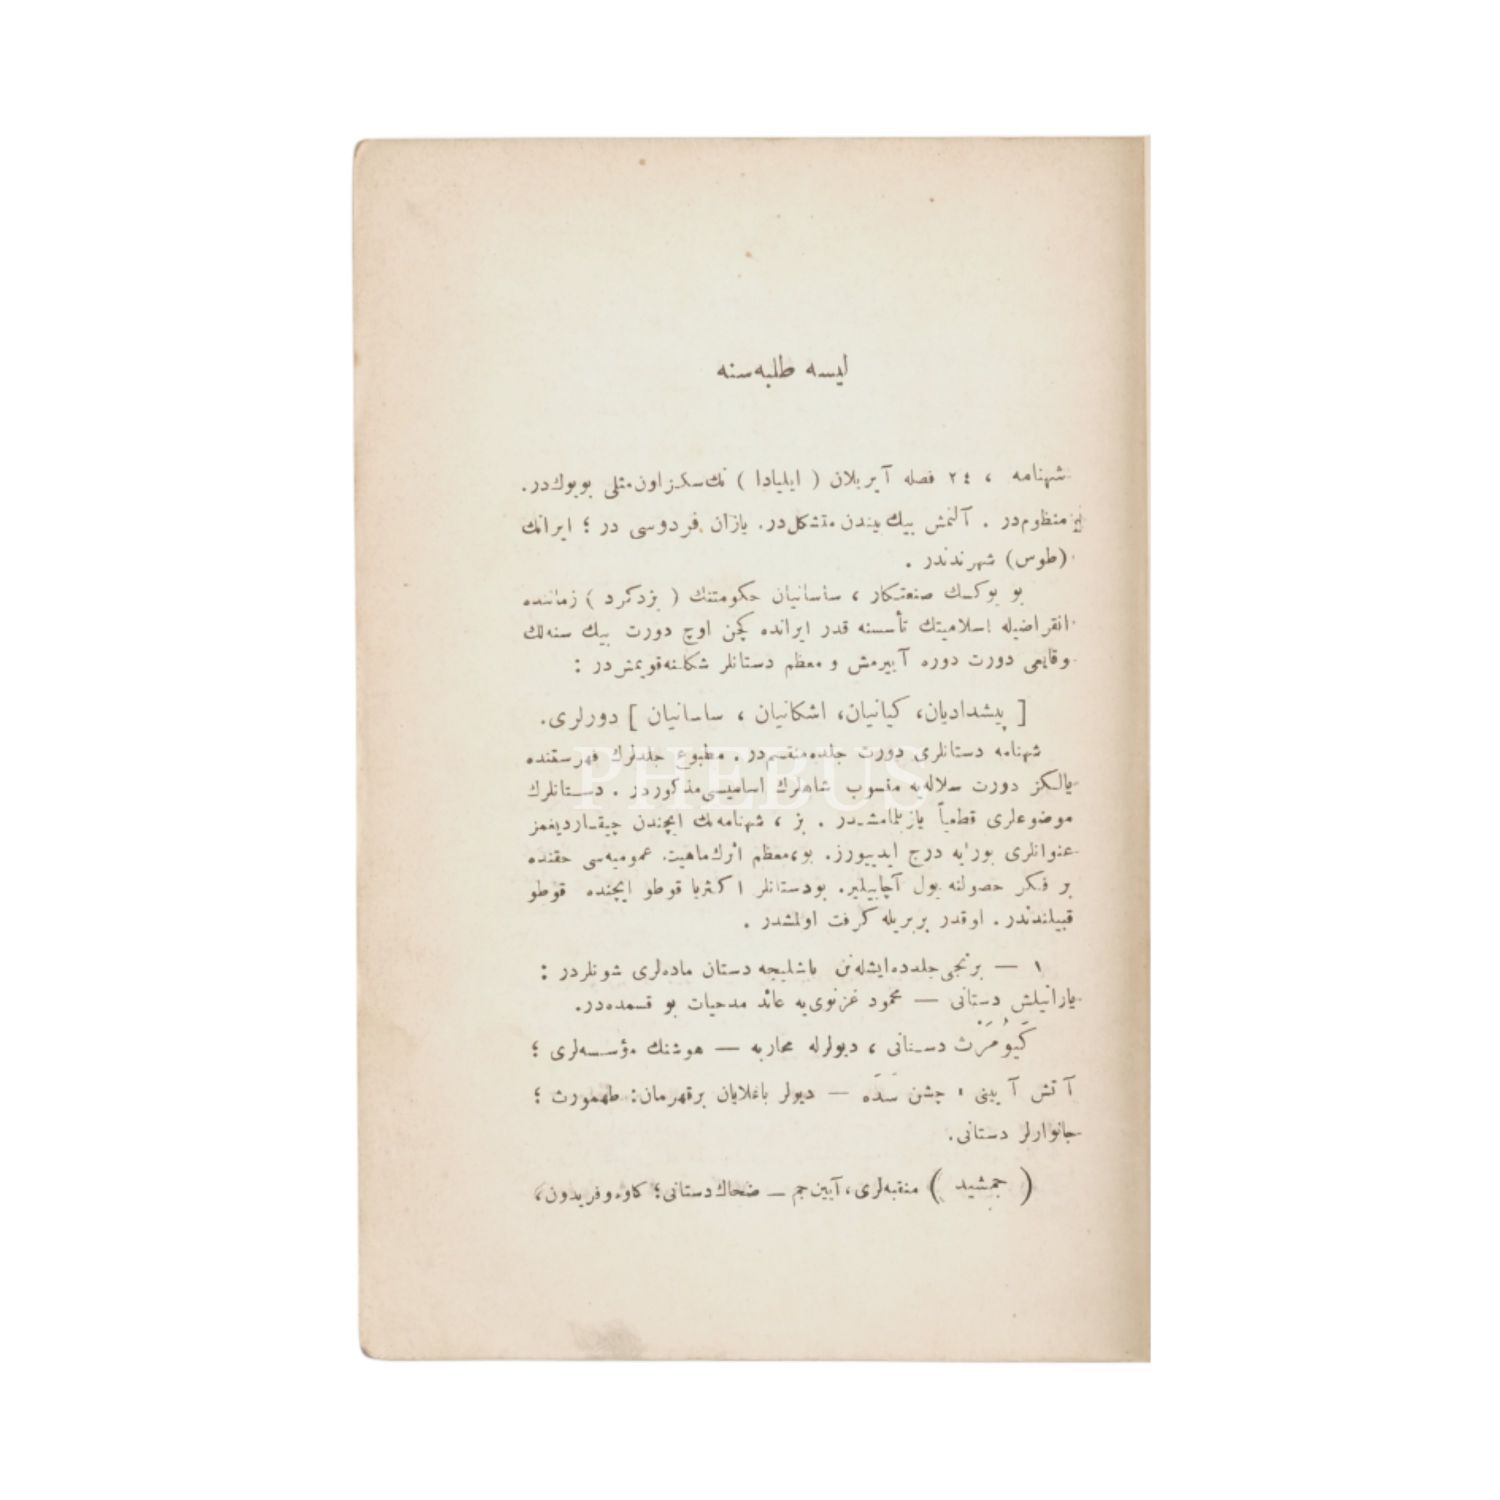 لیسه طلبه‌سنه
شهنامه ، ٢٤ فصله آیریلان ( ایلیادا ) نك سکز اون مثلی بویوك در.
منظوم در . آلتمش بیك بیتدن متشکل در. یازان فردوسی در ؛ ایرانك
(طوس) شهرندندر .
بو بویوك صنعتکار ، ساسانیان حکومتنك ( یزدکرد ) زماننده
انقراضیله اسلامیتك تأسسنه قدر ایرانده کچن اوچ دورت بیك سنه‌لك
وقایعی دورت دوره آییرمش و معظم دستانلر شکلنه قویمش در :
[ پیشدادیان، کیانیان، اشکانیان ، ساسانیان ] دورلری.
شهنامه دستانلری دورت جلده منقسم در. مطبوع جلدلرك فهرستنده
یالکز دورت سلاله‌یه منسوب شاهلرك اسامیسی مذکوردر . دستانلرك
موضوعلری قطعیاً یازیلمامشدر . بز ، شهنامه‌نك ایچندن چیقاردیغمز
عنوانلری بورایه درج ایدییورز. بو، معظم اثرك ماهیت عمومیه‌سی حقنده
بر فکر حصولنه یول آچابیلیر. بودستانلر اکثریا قوطو ایچنده قوطو
قبیلندندر . اوقدر بربریله کرفت اولمشدر .
١ — برنجی جلدده ایشله‌نن باشلیجه دستان ماده‌لری شونلردر :
یارادیلش دستانی — محمود غزنوی‌یه عائد مدحیات بو قسمده‌در.
کَیُومَرْث دستانی ، دیولرله محاربه — هوشنك مؤسسه‌لری ؛
آتش آیینی ، جشن سَدَه — دیولر باغلایان برقهرمان: طهمورث ؛
جانوارلر دستانی.
( جمشید ) منقبه‌لری، آیین جم — ضحاك دستانی؛ کاوه و فریدون،
PHEBUS